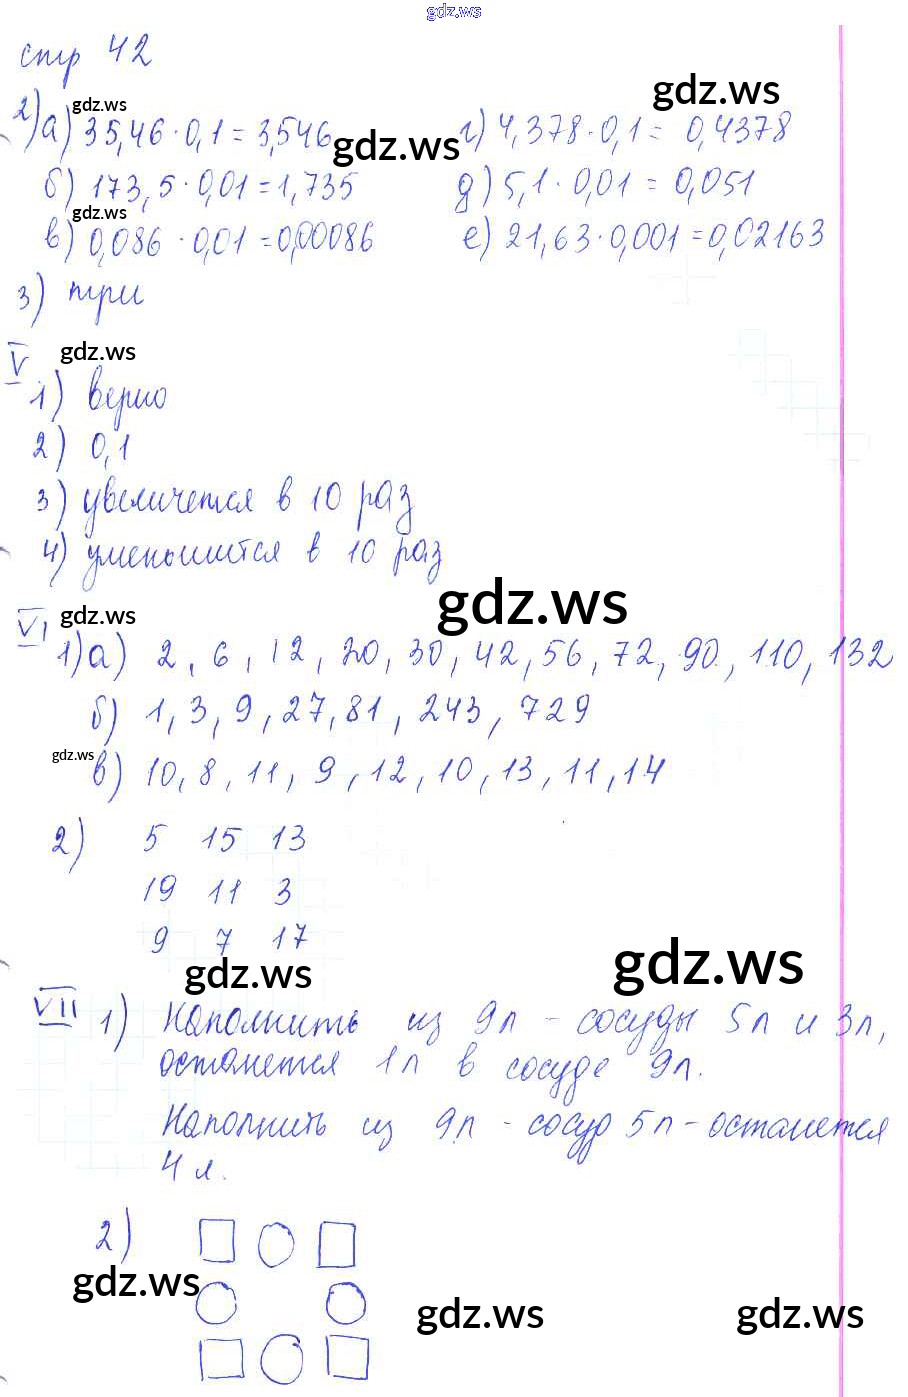 gdz.ws
стр 42
gdz.ws gdz.ws
2) а) 35,46 · 0,1 = 3,546 г) 4,378 · 0,1 = 0,4378
gdz.ws
б) 173,5 · 0,01 = 1,735 д) 5,1 · 0,01 = 0,051
gdz.ws
в) 0,086 · 0,01 = 0,00086 е) 21,63 · 0,001 = 0,02163
3) три
V gdz.ws
1) верно
2) 0,1
3) увеличется в 10 раз
4) уменьшится в 10 раз
gdz.ws
VI gdz.ws
1) а) 2, 6, 12, 20, 30, 42, 56, 72, 90, 110, 132
б) 1, 3, 9, 27, 81, 243, 729
gdz.ws
в) 10, 8, 11, 9, 12, 10, 13, 11, 14
2) 5 15 13
19 11 3
9 7 17
gdz.ws gdz.ws
VII 1) Наполнить из 9л - сосуды 5л и 3л,
останется 1л в сосуде 9л.
Наполнить из 9л - сосуд 5л - останется
4 л.
2)
gdz.ws
gdz.ws gdz.ws